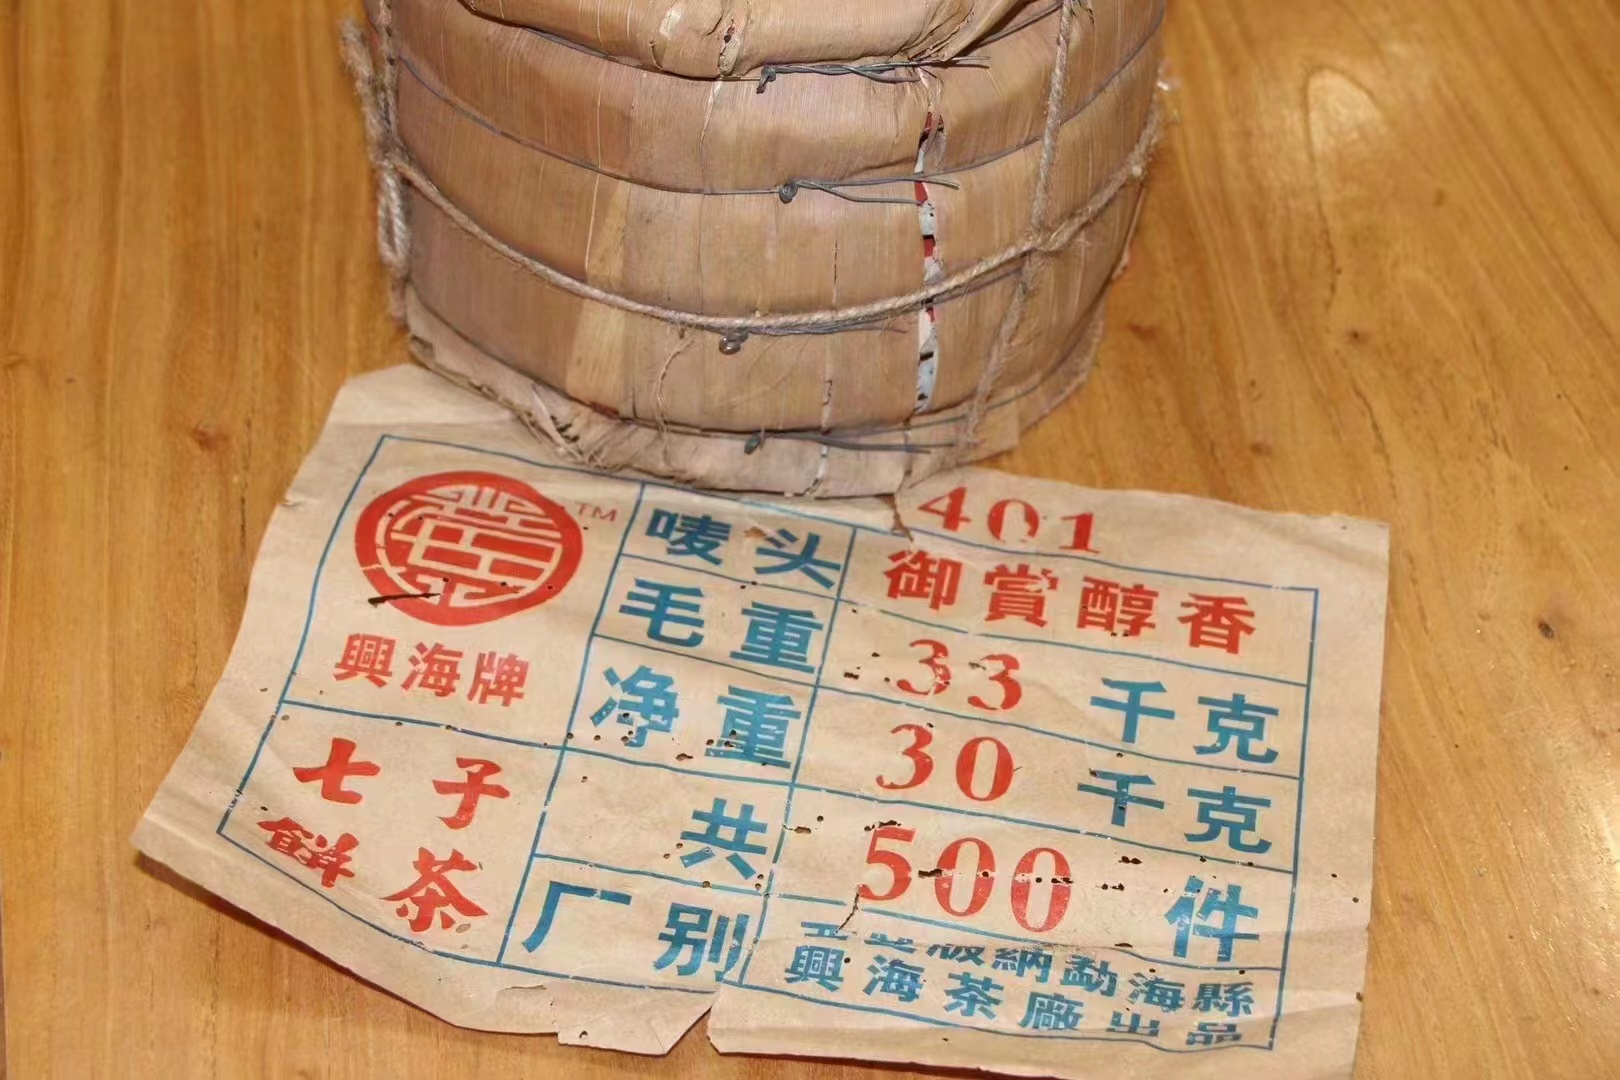 TM
興海牌
七子
餅茶
唛头
401
御賞醇香
毛重 33 千克
净重 30 千克
共 500 件
厂别
西双版納勐海縣
興海茶廠出品